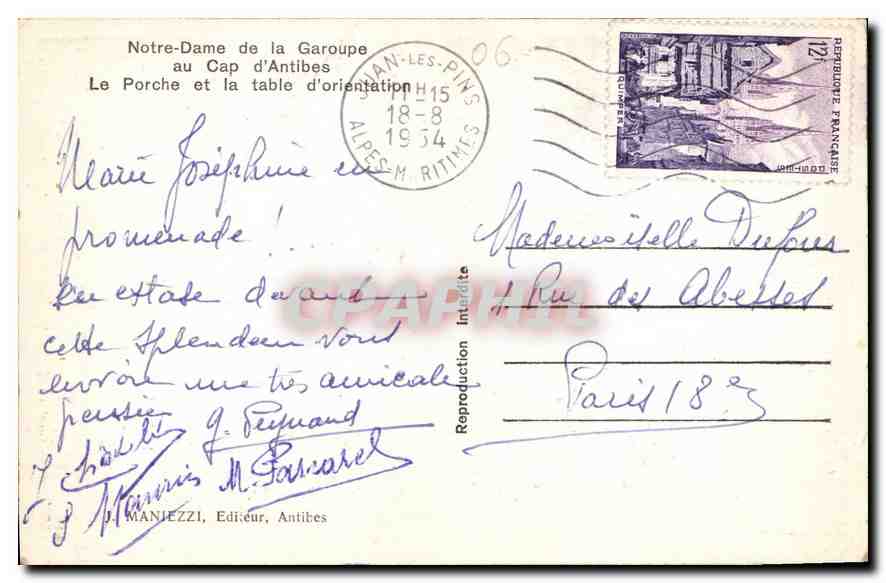 Notre-Dame de la Garoupe
au Cap d'Antibes
Le Porche et la table d'orientation
JUAN-LES-PINS
11H15
18-8
1954
ALPES-M RITIMES
06
REPUBLIQUE FRANÇAISE
12f
POSTES
QUIMPER
Marie Joséphine en
promenade !
En extase devant
cette splendeur vous
envoie une très amicale
pensée
g. Peynaud
M.
Mademoiselle Dufour
1 Rue des Abesses
Paris 18e
Reproduction Interdite
CPAPHIL
J. MANIEZZI, Editeur, Antibes